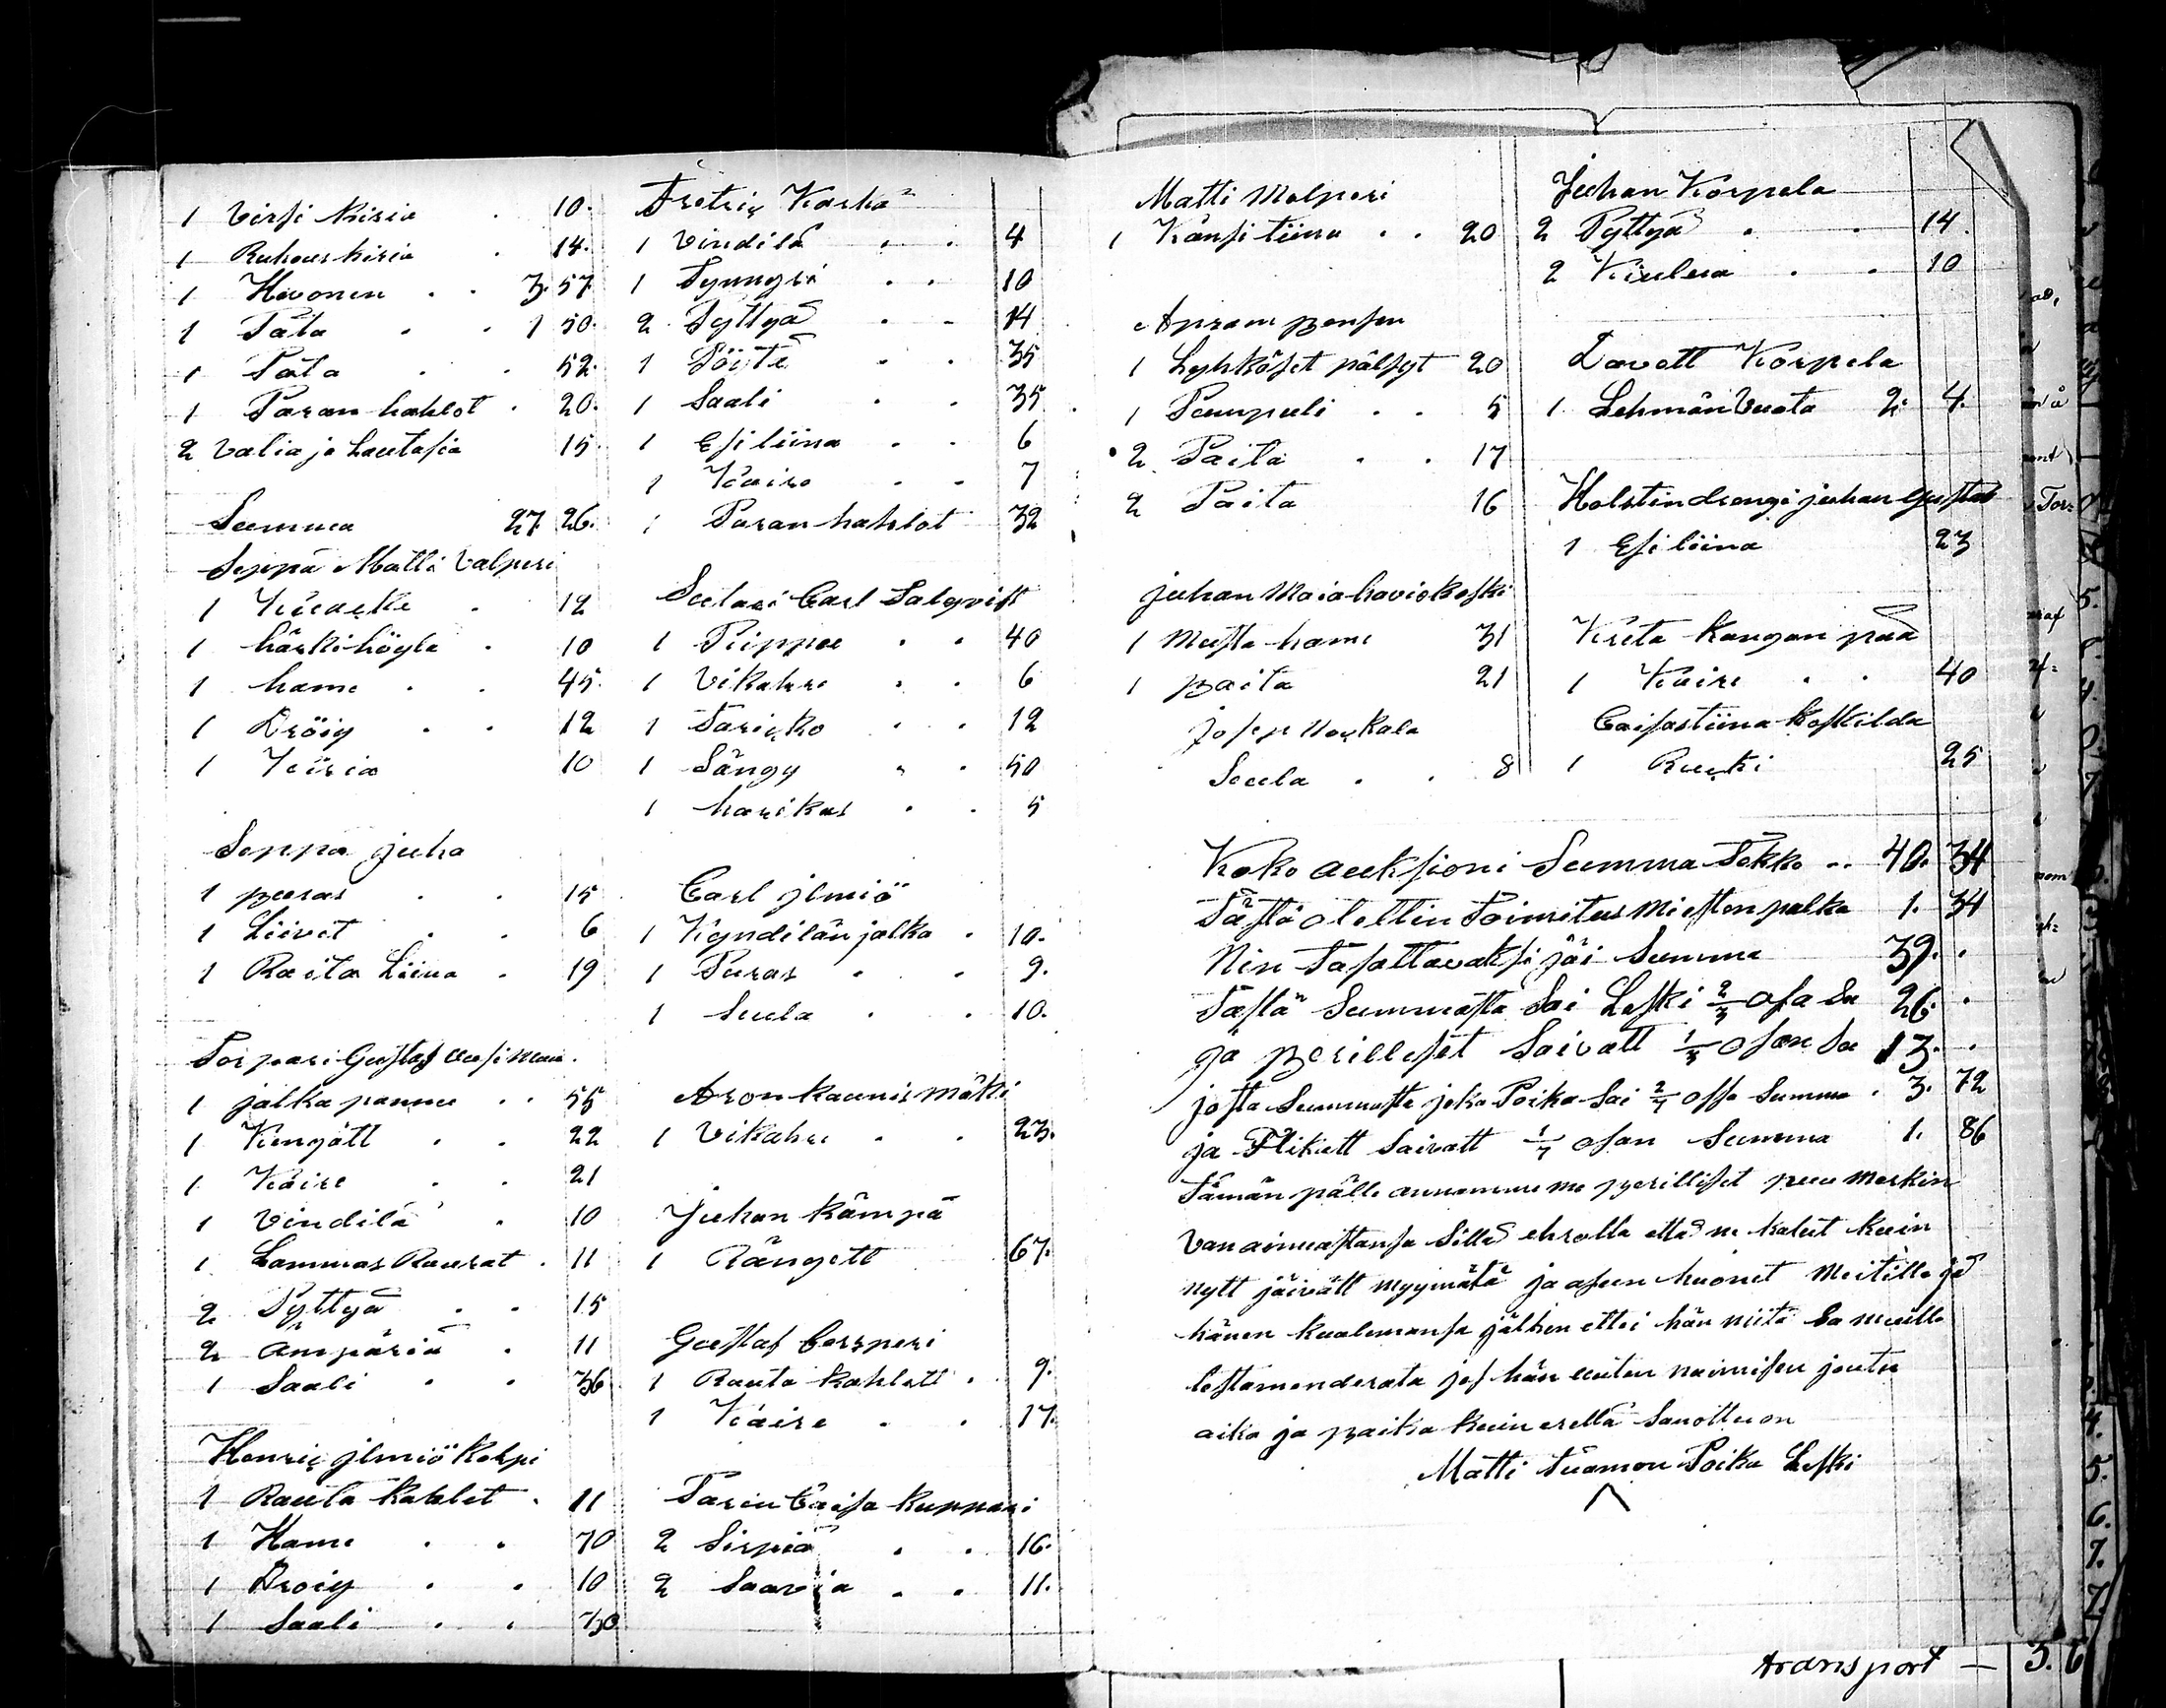 1 Virsi kiria . 10.
1 Rukous kiria . 14.
1 Hevonen . . 3. 57
1 Pata . . 1 50.
1 Pata . . 52.
1 Paran hahlot . 20.
2 Valia ja Lautasia 15.
Summa 27. 26.
Seppä Matti Valperi
1 12
1 härkihöyle . 10
1 hame . . 45.
1 Dröiy . . 12
1 Kiria 10
Seppä Juha
1 puras . . 15
1 Liivit . . 6
1 Raita Liina . 19
Torpari Gustaf uusi maa.
1 jalka pannu . . 55
1 Kengätt . . 22
1 Käire . . 21
1 Vindilä . 10
1 Lammas Raurat . 11
2 Pyttyä . . 15
2 ämpäriä . 11
1 Saali . . 36
Henric jlmiö Kokpi
1 Rauta Kahlet . 11
1 Hame . . 70
1 Droiy . . 10
1 Saali . . 70
1 Vindilä . . 4
1 . . 10
2 Pyttyä . - 14
1 Pöytä . . 35
1 Saali . . 35
1 Esiliina . . 6
1 Käire . . 7
1 Paran hahlot 32
Sulari Carl Salqvist
1 Piippu . . 40
1 Vikahre . . 6
1 Taricko . . 12
1 Sängy . . 50
1 harikas . . 5
Carl jlmiö
1 Kyndilän jalka . 10.
1 Puras . . 9.
1 Suula . . 10.
Aron kaunis mäki
1 Vikahre . . 23.
Juhan Kämpä
1 Rängett 67.
Gustaf Casperi
1 Rauta kahlett . 9.
1 Käire . . 17.
Caisa Kuppari
2 Sirpiä . . 16.
2 Saavia . . 11.
Matti Malperi
1 Känsi tiinu . . 20
Apram pensen
1 Lyhköset pälsyt 20
1 Pumpuli . . 5
2 Paita . . 17
2 Paita 16
juhan Maia haviskoski
1 Musta hame 31
1 paita 21
Josep Uockala
Suula . . 8
Juhan Korpela
2 Pyttyä . . 14.
2 Kiulua . . 10
Davett Korpela
1 Lehmän Vuota 2. 4.
Holstin drengi juhan gustaf
1 Esiliina 23
Kreta Kangan pää
1 Käire . . 40
Caisastiina koskilda
1 Rucki 25
Koko auksioni Summa Tekke .. 40. 34
Tästä olettin Toimitus miesten palka 1. 34
Nin Tasattavaksi jäi Summa 39. .
Tästä Summasta Sai Leski 2/3 osa Su 26. .
ja perilliset Saivatt 1/3 osan Su 13. .
josta Summasta joka Poika Sai 2/7 ossa Summa . 3. 72
ja Flikatt Saivatt 1/7 osan Summa 1. 86
Tämän pälle annamme me perilliset puu Merkin
Van aimuastansa Sillä ehrolla että ne kalut kuin
nytt jäivätt myymätä ja asuin huonet Meitille jä
hänen kualemansa jälken ettei hän niitä Sa muulle
testamenderata jos hän uuten naimisen joutu
aika ja paika kuin erellä Sanottu on
Matti Tuamon Poika Leski
Transport — 3. 6